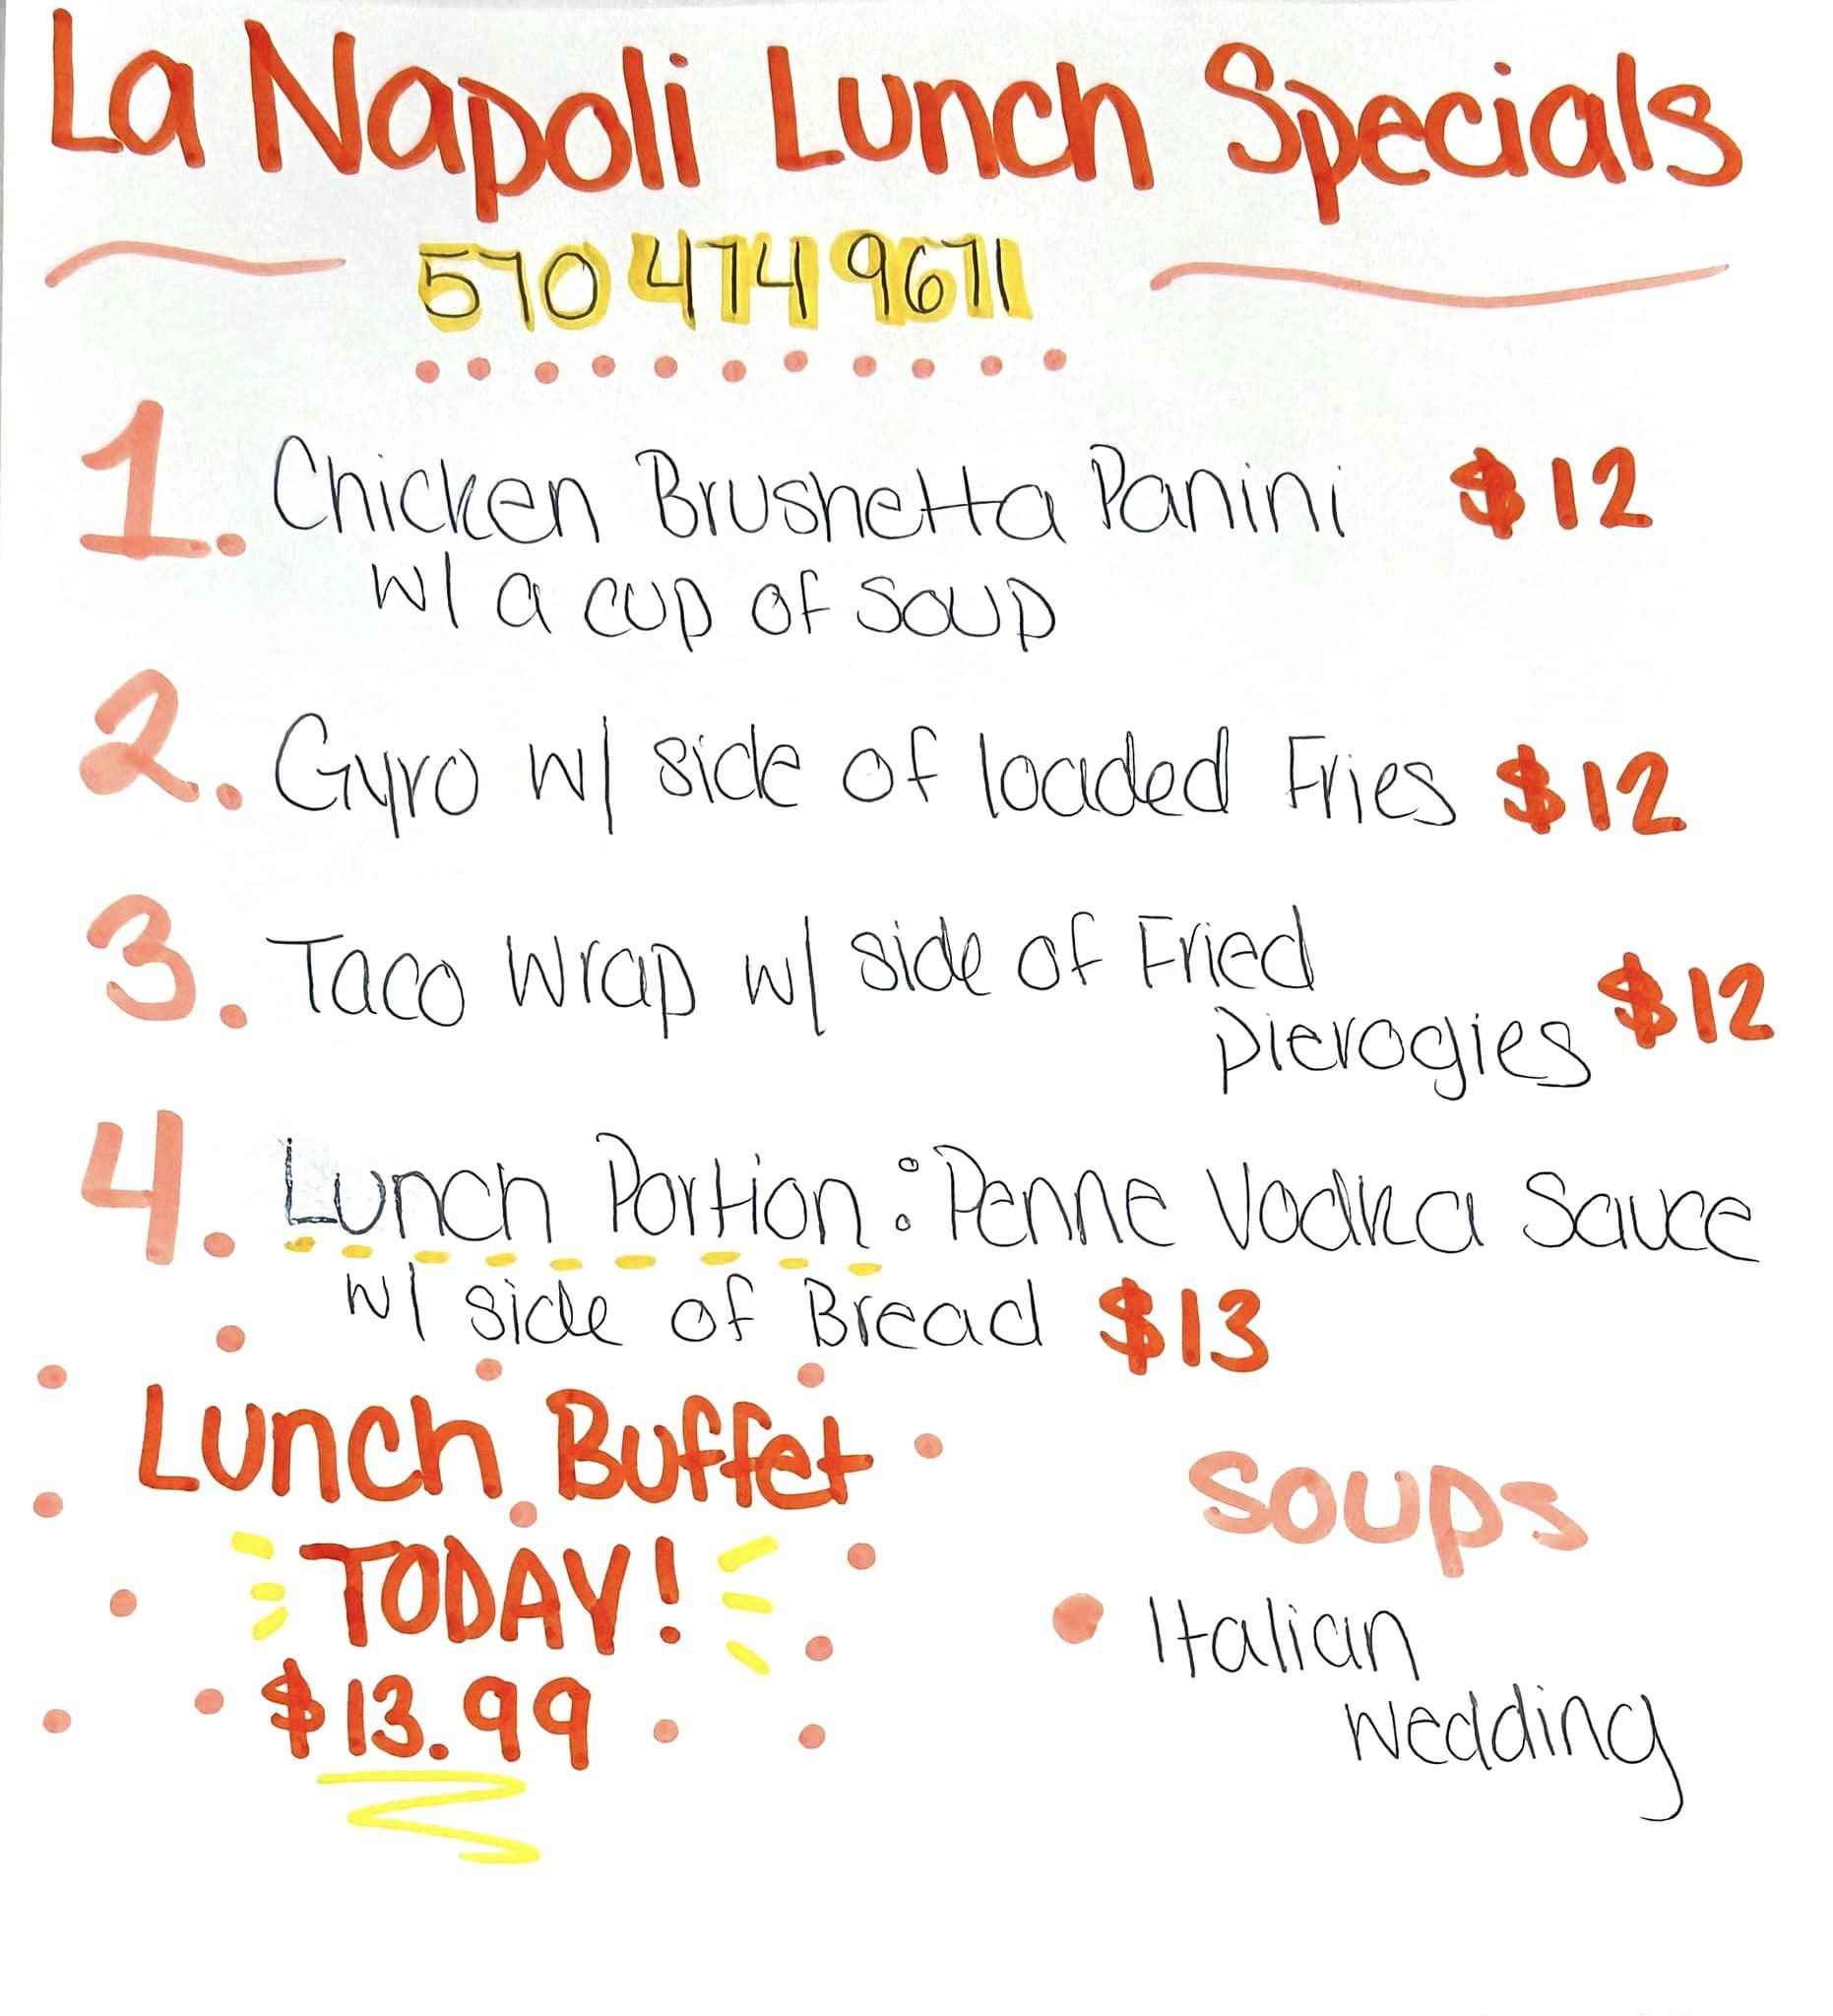 La Napoli Lunch Specials
570 474 9671
1. Chicken Brushetta Panini $12
w/ a cup of soup
2. Gyro w/ side of loaded Fries $12
3. Taco Wrap w/ side of Fried
pierogies $12
4. Lunch Portion: Penne Vodka Sauce
w/ side of Bread $13
Lunch Buffet
TODAY!
$13.99
Soups
• Italian
Wedding